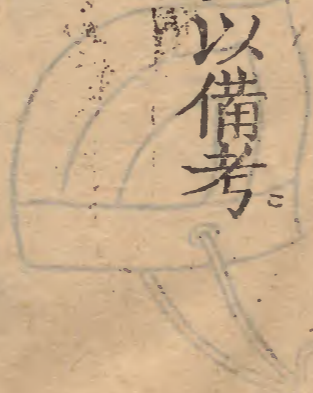 以備考